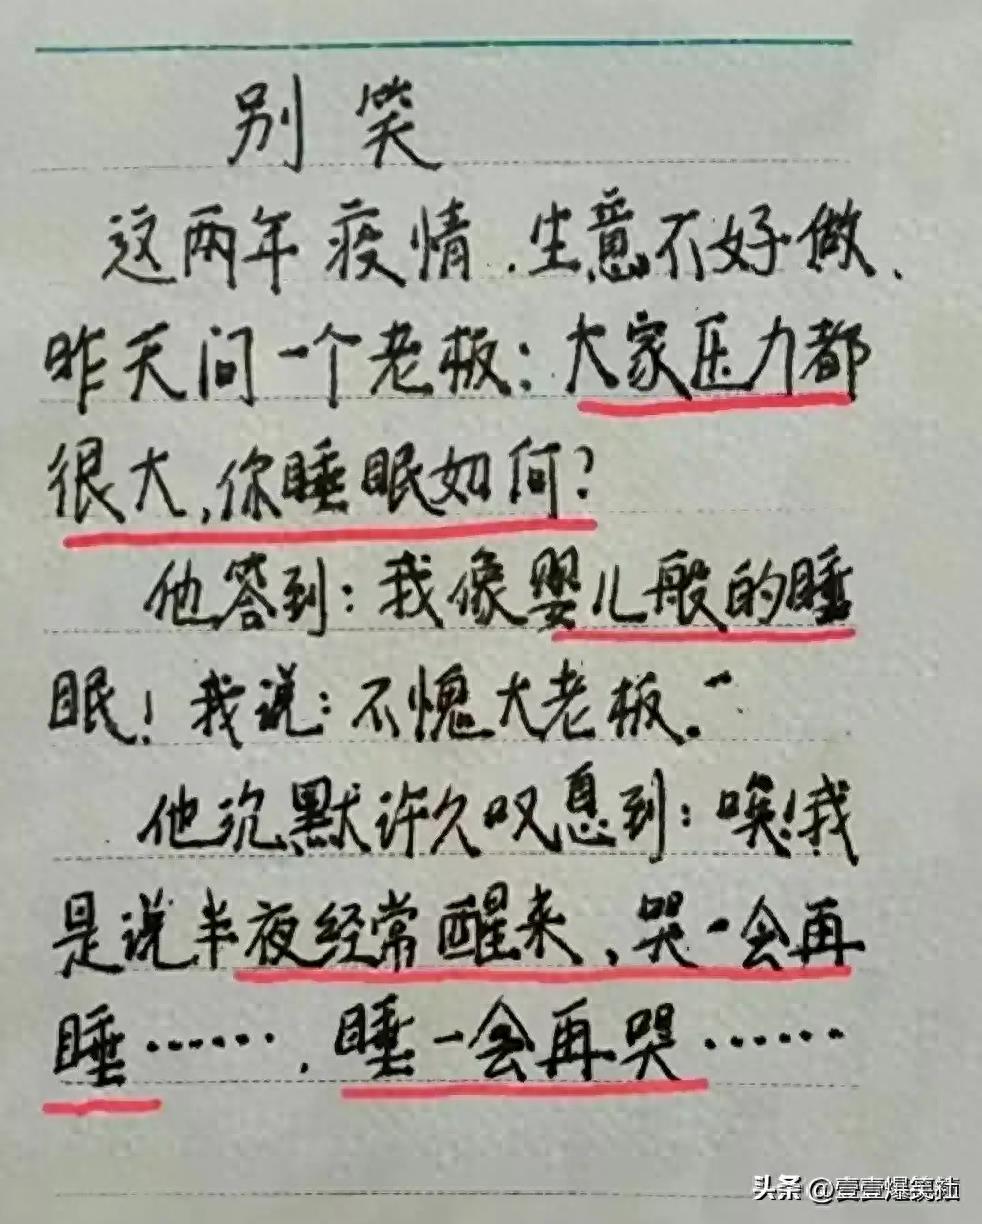 别笑
这两年疫情.生意不好做、
昨天问一个老板:大家压力都
很大,你睡眠如何?
他答到:我像婴儿般的睡
眠!我说:不愧大老板.
他沉默许久叹息到:唉!我
是说半夜经常醒来、哭一会再
睡……,睡一会再哭……
头条 @壹壹爆笑社